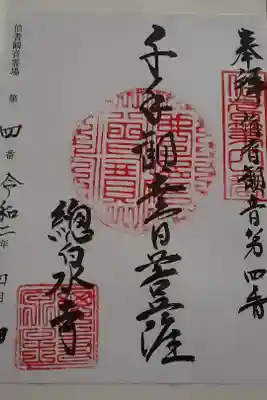 奉拝 伯耆観音第四番
千手観世音菩薩
總泉寺
伯耆観音霊場 第四番 令和二年 四月 日